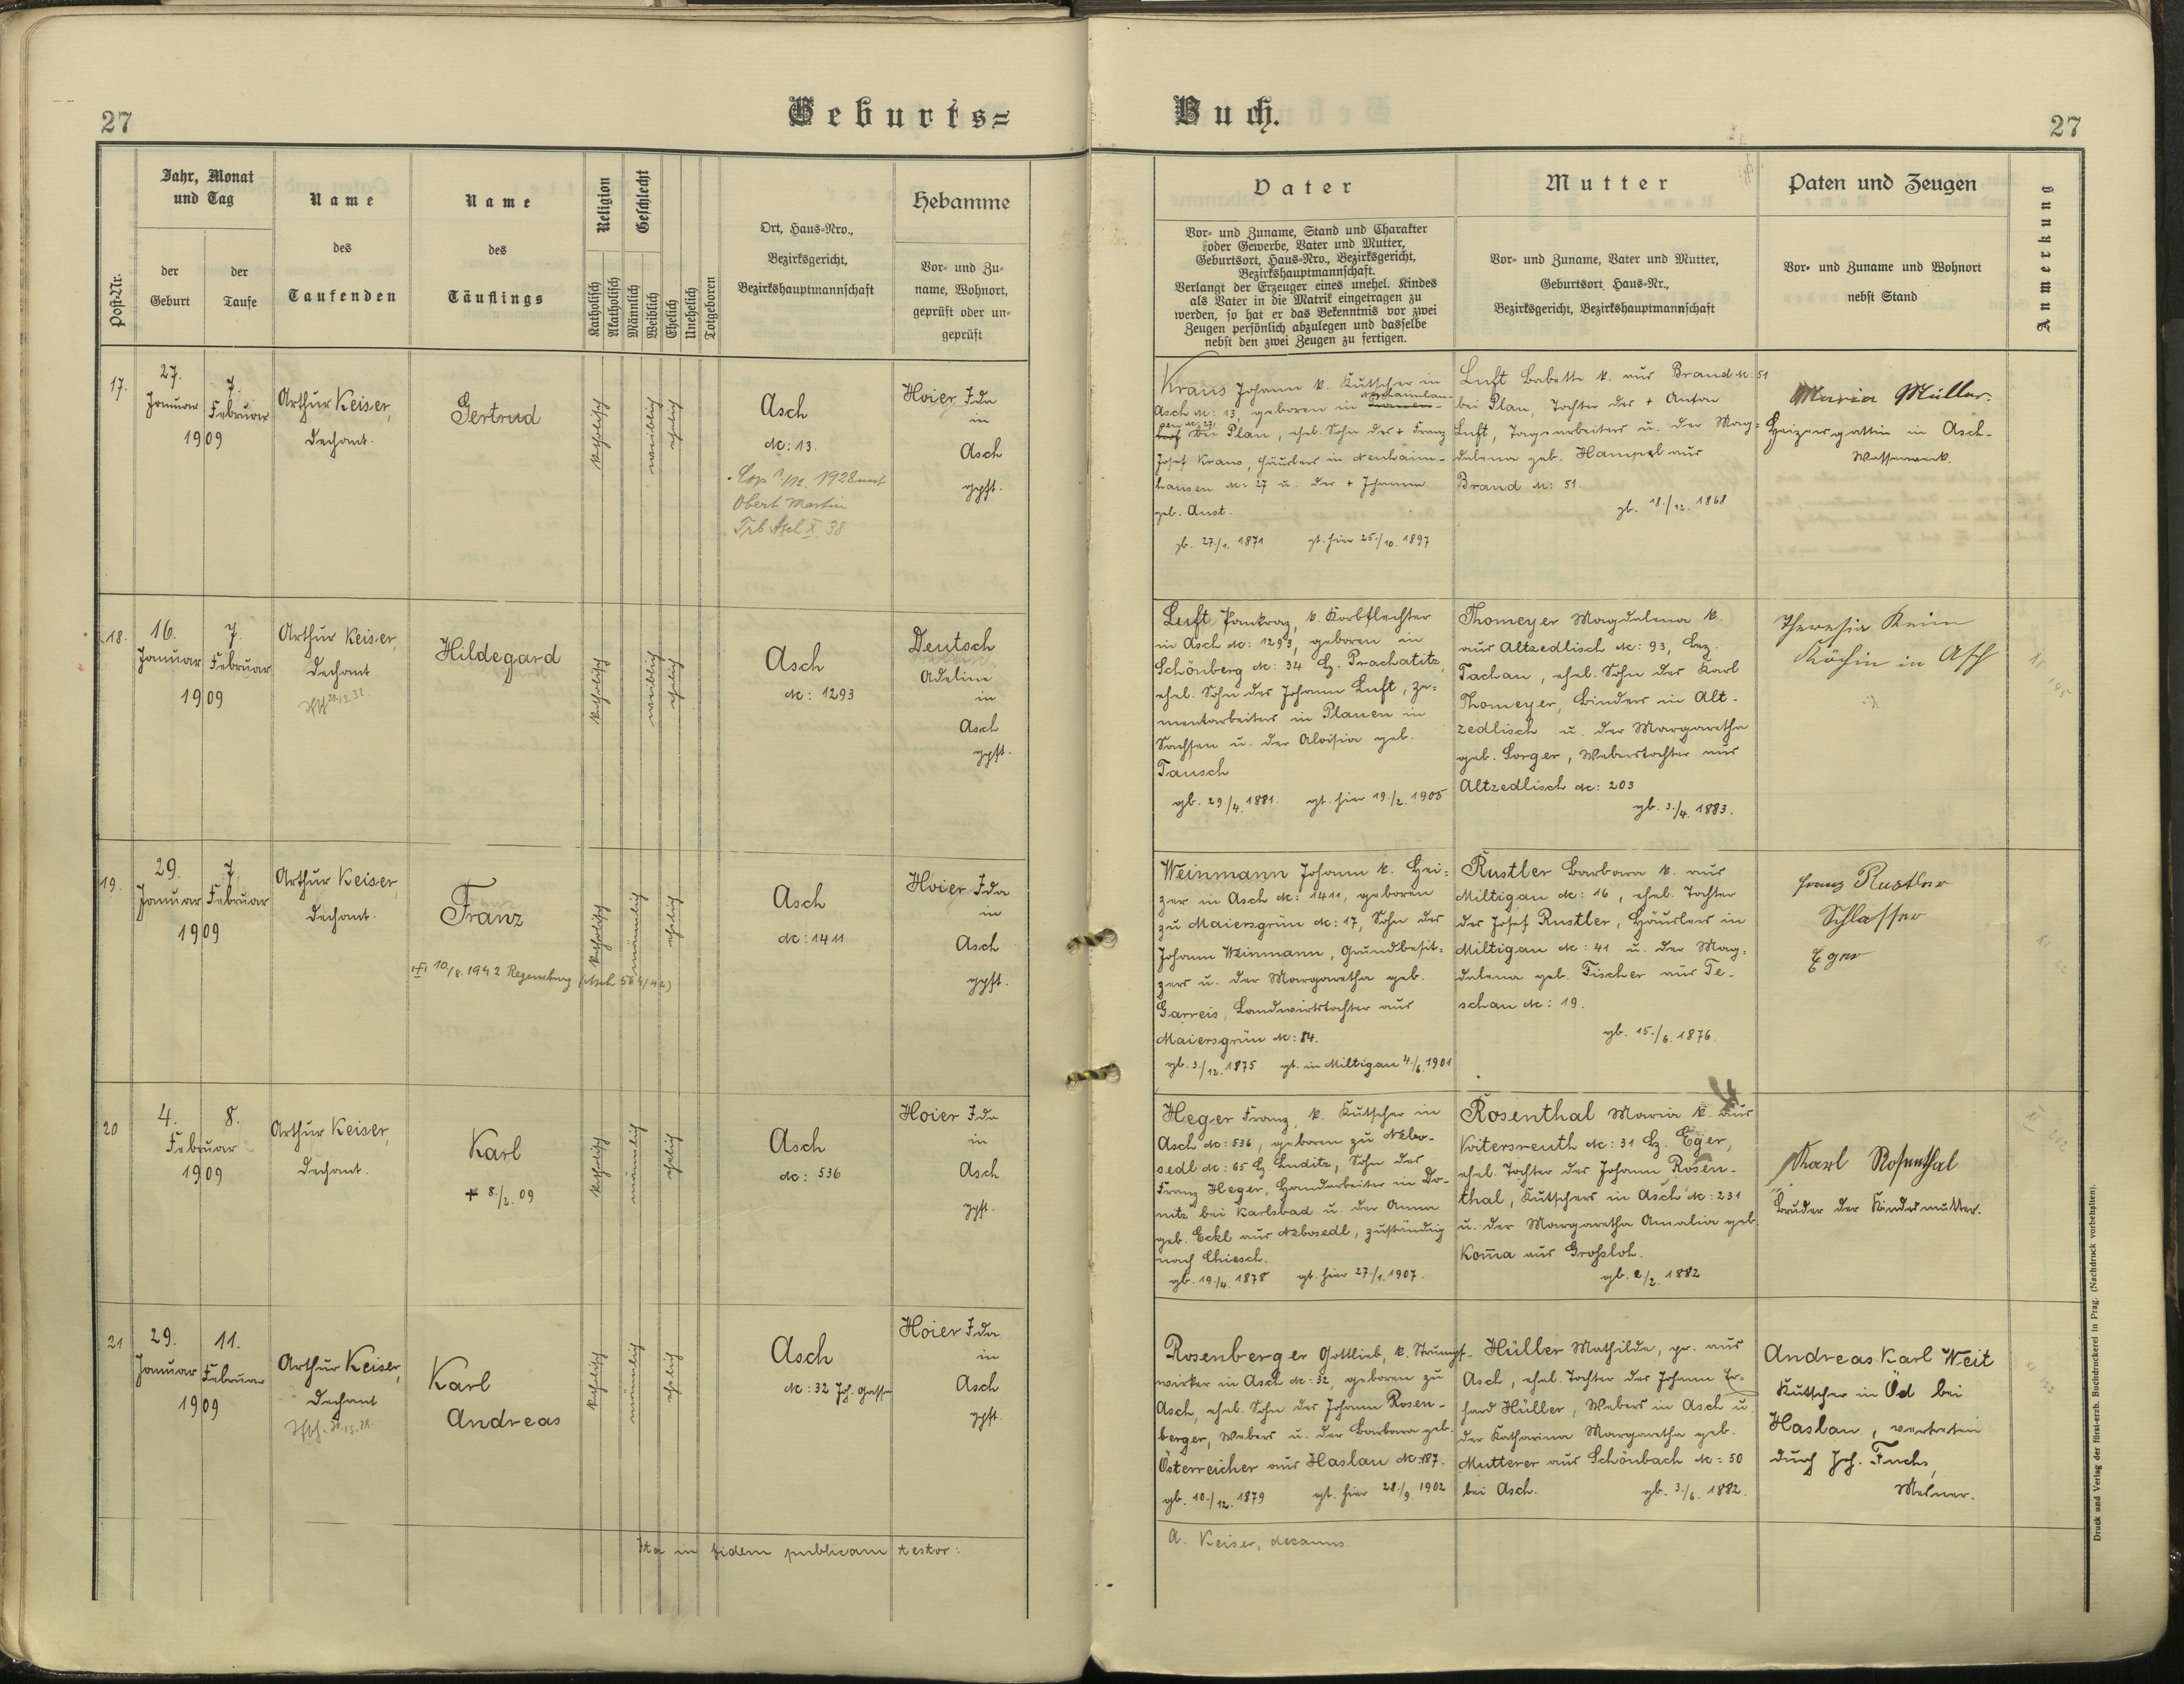 27
Geburts=
Buch.
27
Post-Nr.
Jahr, Monat
und Tag
der
Geburt
der
Taufe
Name
des
Taufenden
Name
des
Täuflings
Religion
Katholisch
Akatholisch
Geschlecht
Männlich
Weiblich
Ehelich
Unehelich
Totgeboren
Ort, Haus-Nro.,
Bezirksgericht,
Bezirkshauptmannschaft
Hebamme
Vor- und Zu-
name, Wohnort,
geprüft oder un-
geprüft
Vater
Vor- und Zuname, Stand und Charakter
oder Gewerbe, Vater und Mutter,
Geburtsort, Haus-Nro., Bezirksgericht,
Bezirkshauptmannschaft.
Verlangt der Erzeuger eines unehel. Kindes
als Vater in die Matrik eingetragen zu
werden, so hat er das Bekenntnis vor zwei
Zeugen persönlich abzulegen und dasselbe
nebst den zwei Zeugen zu fertigen.
Mutter
Vor- und Zuname, Vater und Mutter,
Geburtsort, Haus-Nr.,
Bezirksgericht, Bezirkshauptmannschaft
Paten und Zeugen
Vor- und Zuname und Wohnort
nebst Stand
Anmerkung
17.
27.
Januar
7.
Februar
1909
Arthur Keiser,
Dechant.
Gertrud
katholisch
weiblich
ehelich
Asch
N: 13.
1928 mit
Obert Martin
Asch X. 38
Hoier Ida
in
Asch
gpft.
Kraus Johann k. Kutscher in
Asch N: 13, geboren in
bei Plan, ehel. Sohn des + Franz
Josef Kraus, Häuslers in Neuhaim-
hausen N: 27 u. der + Johanna
geb. Anst.
gb. 27./1. 1871 gt. hier 25./10. 1897
Luft Babette k. aus Brand N: 51
bei Plan, Tochter des + Anton
Luft, Tagarbeiters u. der Mag-
dalena geb. Hampel aus
Brand N: 51.
gb. 18./12. 1868
Maria Müller.
Heizersgattin in Asch-
Wasserwerk.
18.
16.
Januar
7.
Februar
1909
Arthur Keiser,
Dechant
Hildegard
katholisch
weiblich
ehelich
Asch
N: 1293
Deutsch
Adeline
in
Asch
gpft.
Luft Pankraz, k. Korbflechter
in Asch N: 1293, geboren in
Schönberg N: 34 B. Prachatitz,
ehel. Sohn des Johann Luft, Ze-
mentarbeiters in Plauen in
Sachsen u. der Aloisia geb.
Tausch
gb. 29./4. 1881. gt. hier 19./2. 1905
Thomeyer Magdalena k.
aus Altzedlisch N: 93, Bez.
Tachau, ehel. Sohn des Karl
Thomeyer, Binders in Alt-
zedlisch u. der Margaretha
geb. Sorger, Weberstochter aus
Altzedlisch N: 203
gb. 3./4. 1883.
Theresia Keim
Köchin in Asch
19.
29.
Januar
7.
Februar
1909
Arthur Keiser,
Dechant.
Franz
10/8. 1942 Regensburg (Asch 564/42)
katholisch
männlich
ehelich
Asch
N: 1411
Hoier Ida
in
Asch
gpft.
Weinmann Johann k. Hei-
zer in Asch N: 1411, geboren
zu Maiersgrün N: 17, Sohn des
Johann Weinmann, Grundbesit-
zers u. der Margaretha geb.
Garreis, Landwirtstochter aus
Maiersgrün N: 84.
gb. 3./12. 1875 gt. in Miltigau 4./6. 1901
Rustler Barbara k. aus
Miltigau N: 16, ehel. Tochter
des Josef Rustler, Häuslers in
Miltigau N: 41 u. der Mag-
dalena geb. Fischer aus Te-
schau N: 19.
gb. 15./6. 1876.
Franz Rustler
Schlosser
Eger
20
4.
8.
Februar
1909
Arthur Keiser,
Dechant.
Karl
+ 8./2. 09
katholisch
männlich
ehelich
Asch
N: 536
Hoier Ida
in
Asch
gpft.
Heger Franz, k. Kutscher in
Asch N: 536, geboren zu Nebo-
sedl N: 65 B. Luditz, Sohn des
Franz Heger, Handarbeiter in Do-
nitz bei Karlsbad u. der Anna
geb. Eckl aus Nebosedl, zuständig
nach Chiesch.
gb. 19./4. 1878 gt. hier 27./1. 1907.
Rosenthal Maria k. aus
Voitersreuth N: 31 B. Eger,
ehel. Tochter des Johann Rosen-
thal, Kutschers in Asch N: 231
u. der Margaretha Amalia geb.
Koma aus Großloh.
gb. 2/2. 1882
Karl Rosenthal
Bruder der Kindesmutter.
21
29.
Januar
11.
Februar
1909
Arthur Keiser,
Dechant
Karl
Andreas
katholisch
männlich
ehelich
Asch
N: 32 Joh. Gasse
Hoier Ida
in
Asch
gpft.
Rosenberger Gottlieb, k. Strumpf-
wirker in Asch N: 32, geboren zu
Asch, ehel. Sohn des Johann Rosen-
berger, Webers u. der Barbara geb.
Österreicher aus Haslau N: 187.
gb. 10./12. 1879 gt. hier 28./9. 1902
Hüller Mathilde, pr. aus
Asch, ehel. Tochter des Johann Er-
hard Hüller, Webers in Asch u.
der Katharina Margaretha geb.
Mutterer aus Schönbach N: 50
bei Asch. gb. 3./6. 1882.
Andreas Karl Weit
Kutscher in Öd bei
Haslau, vertreten
durch Joh. Fuchs,
Mesner.
Ita in fidem publicam testor:
A. Keiser, decanus.
Druck und Verlag der fürst-erzb. Buchdruckerei in Prag. (Nachdruck vorbehalten).